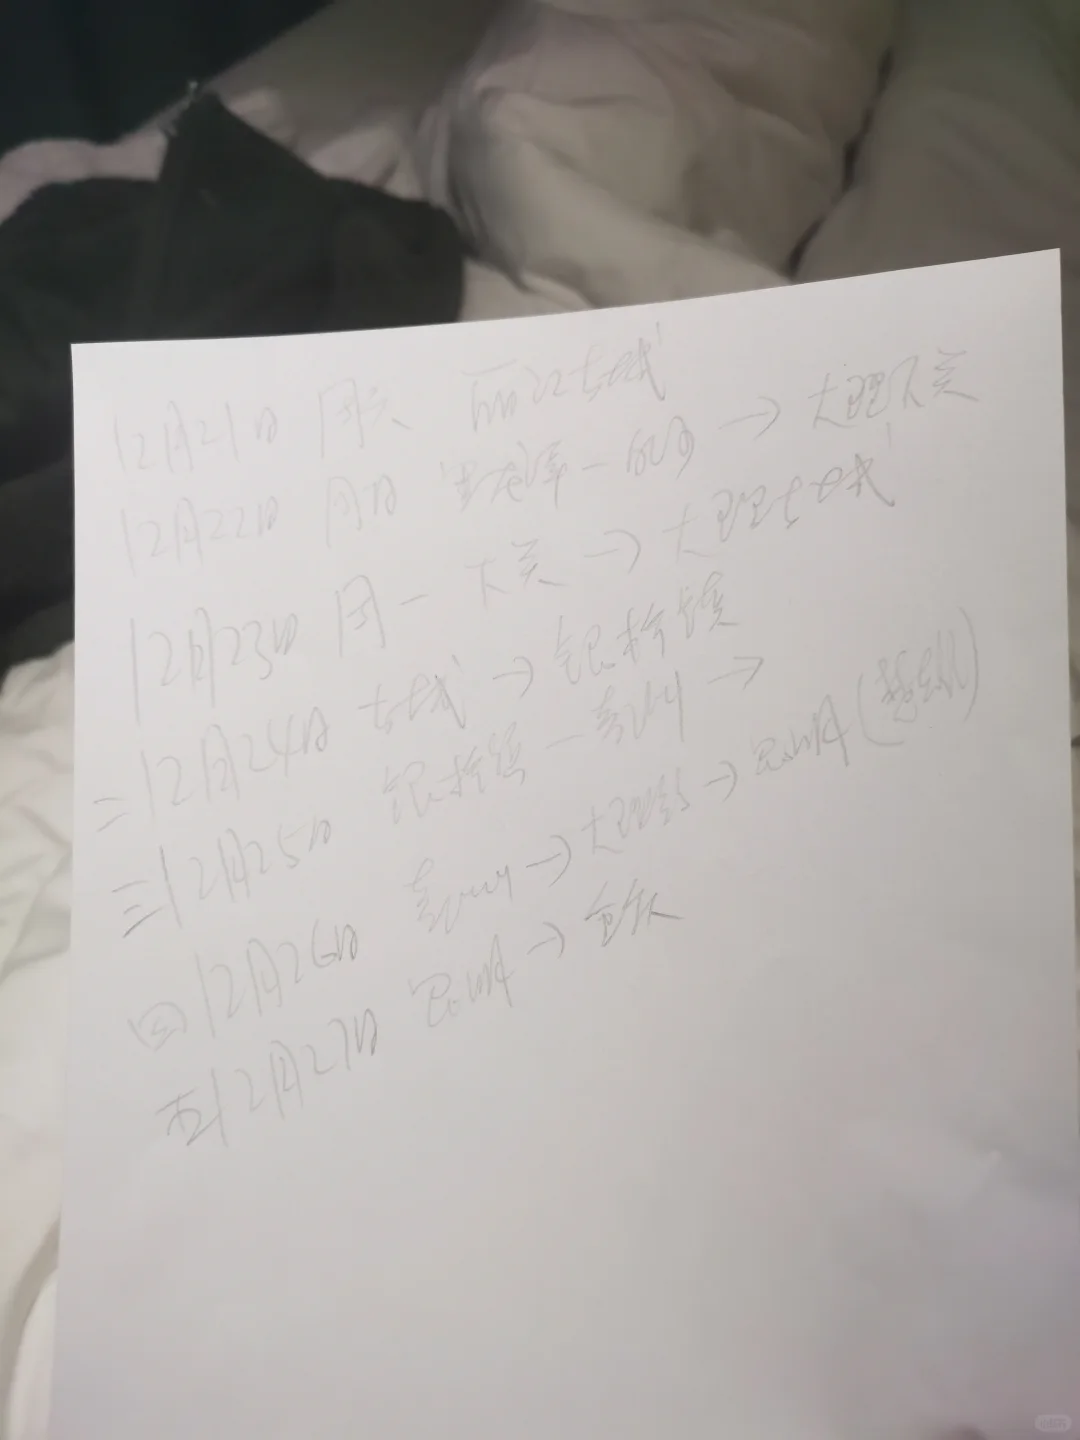 12月21日 周六 丽江古城
12月22日 周日 黑龙潭 - 束河 → 大理下关
12月23日 周一 下关 → 大理古城
二 12月24日 古城 → 银桥镇
三 12月25日 银桥镇 - 喜洲 →
四 12月26日 喜洲 → 大理 → 昆明
五 12月27日 昆明 →